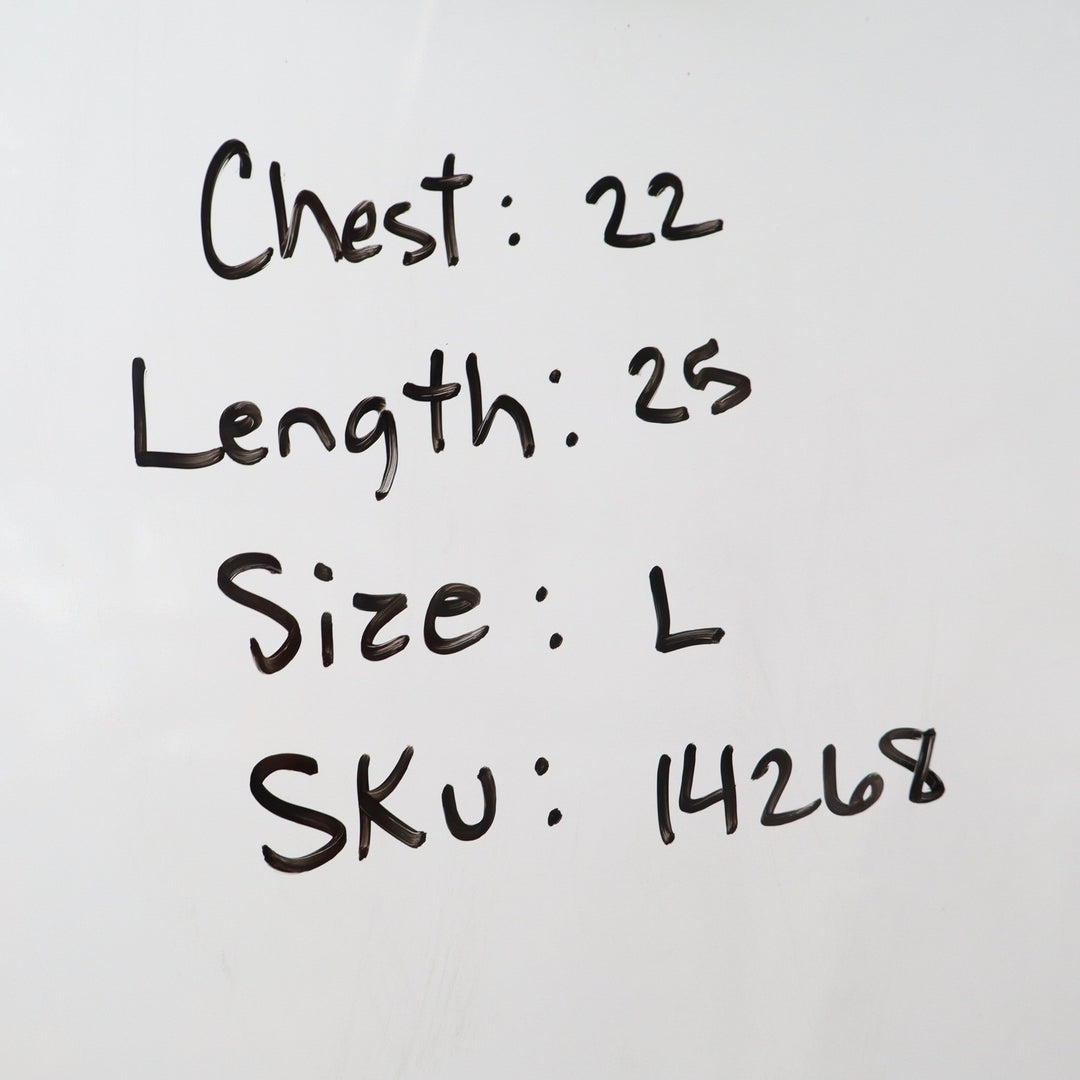 Chest: 22
Length: 25
Size: L
SKU: 14268